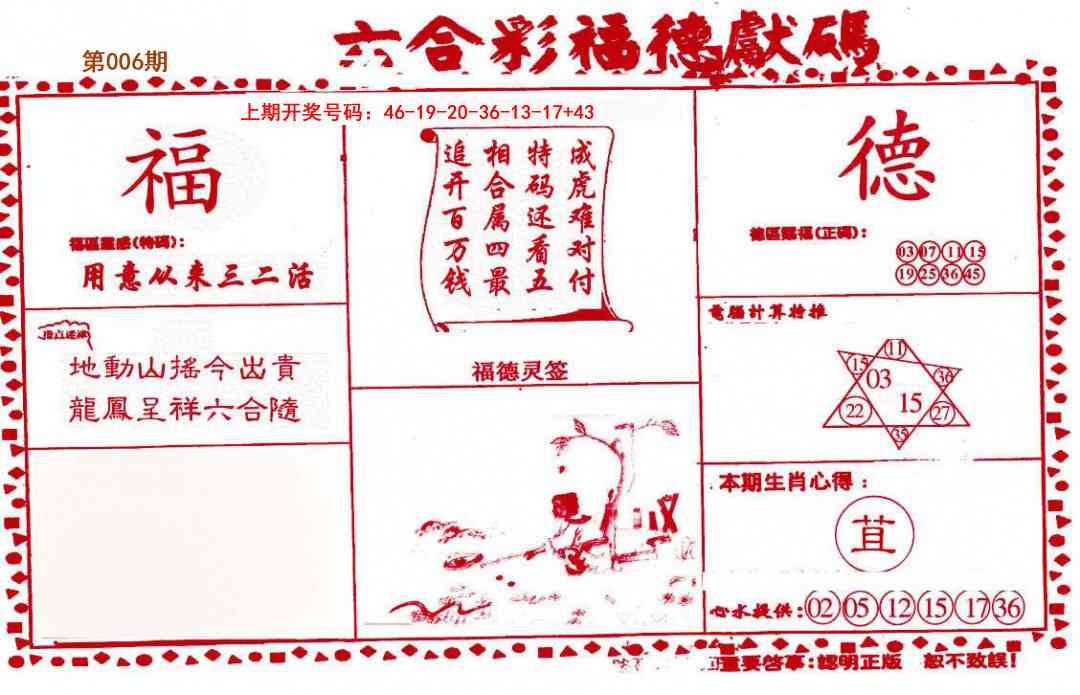 六合彩福德獻碼
第006期
上期开奖号码：46-19-20-36-13-17+43
福
福區靈感(特碼)：
用意从来三二活
地動山搖今出貴
龍鳳呈祥六合隨
成虎难对付
特码还看五
相合属四最
追开百万钱
福德灵签
德
德區賜福(正碼)：
03 07 11 15
19 25 36 45
電腦計算特推
11
15 36
03
15
22 27
35
本期生肖心得：
苴
心水提供：02 05 12 15 17 36
重要啓事：認明正版 恕不致誤！